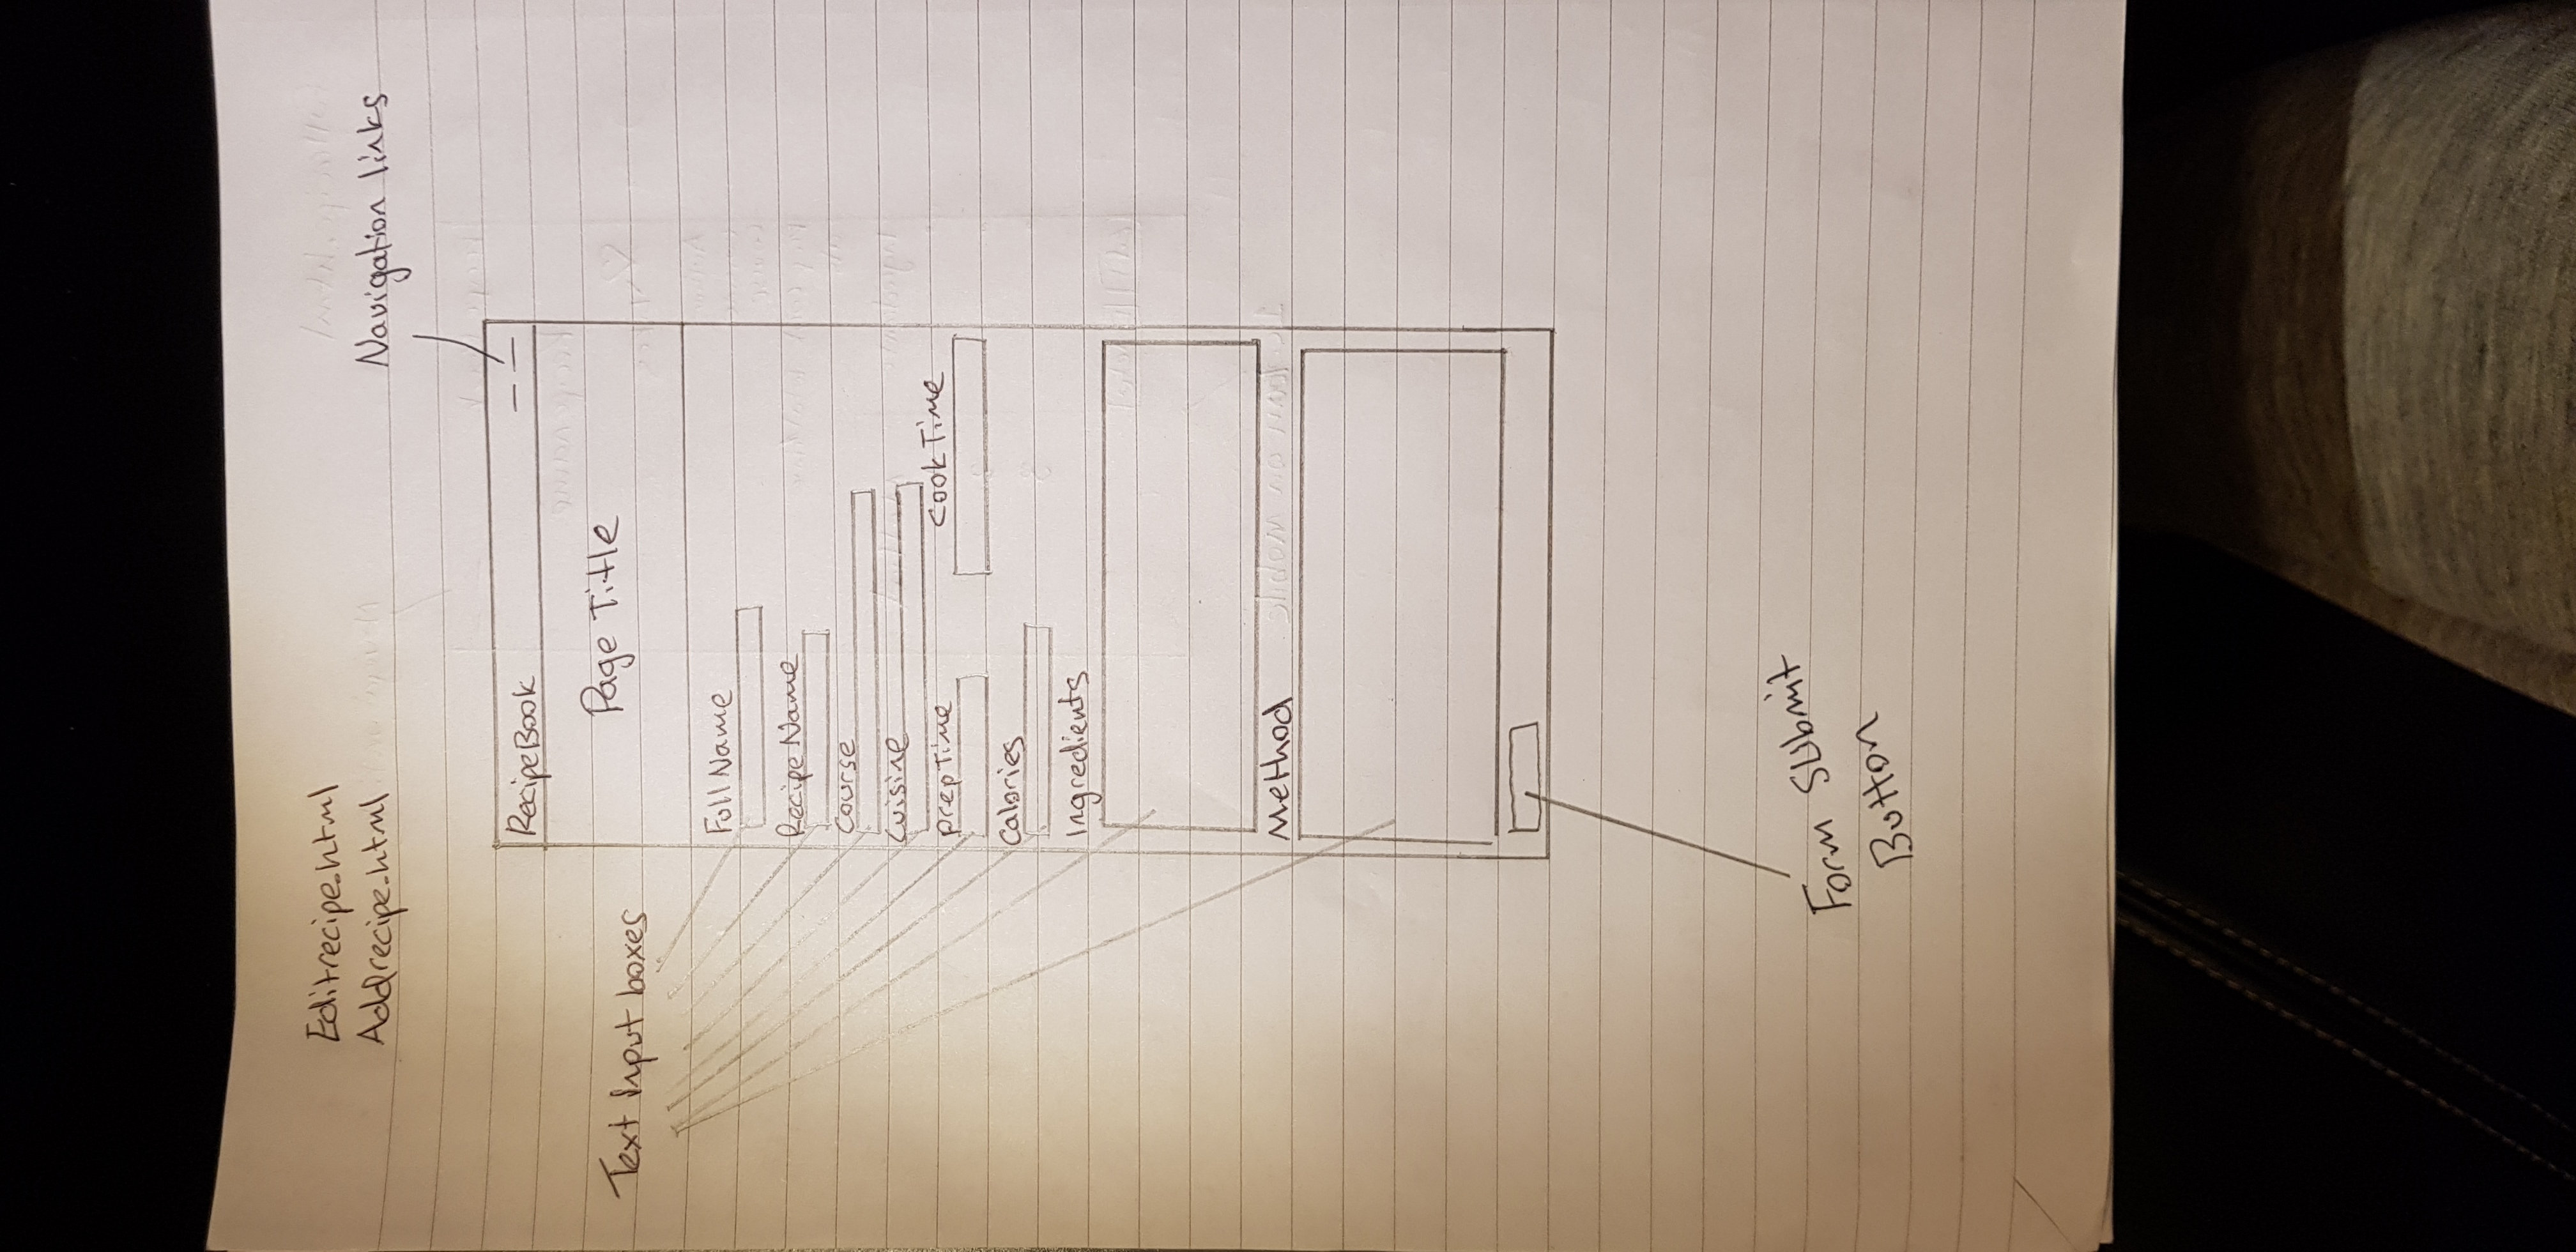 Editrecipe.html
Addrecipe.html
Navigation links
RecipeBook
Page Title
Text Input boxes
Full Name
Recipe Name
Course
Cuisine
PrepTime
CookTime
Calories
Ingredients
Method
Form Submit
Button